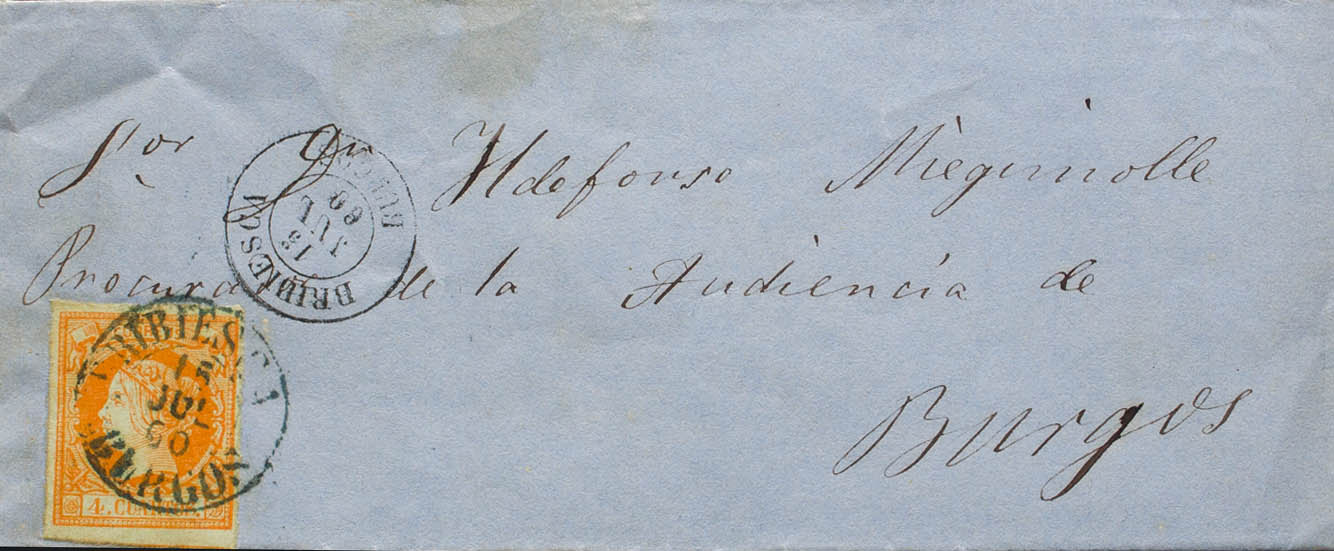 Sor Dn Ildefonso Miegimolle
Procurador de la Audiencia de
Burgos
BRIBIESCA
13
JUL
60
BURGOS
BRIBIESCA
13
JUL
60
BURGOS
4 CUARTOS